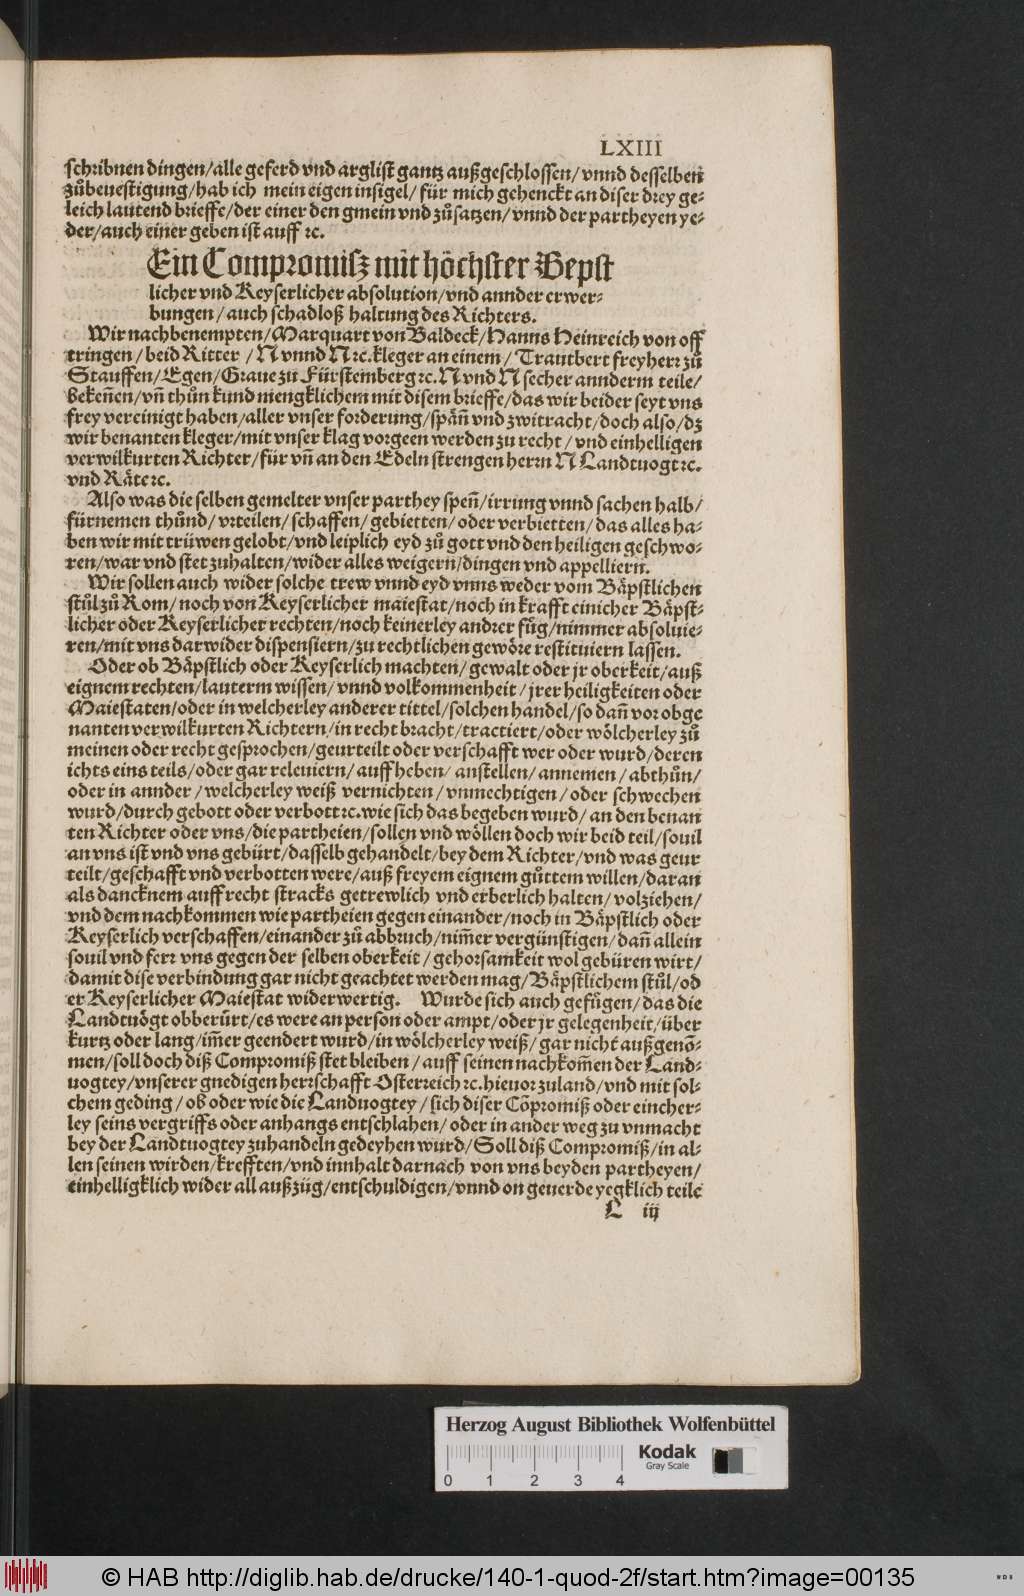 LXIII
schribnen dingen/alle geferd vnd arglist gantz außgeschlossen/vnnd desselben
zůbeuestigung/hab ich mein eigen insigel/für mich gehenckt an diser drey ge-
leich lautend brieffe/der einer den gmein vnd zůsatzen/vnnd der partheyen ye-
der/auch einer geben ist auff ꝛc.
Ein Compromisz mit höchster Bepst
licher vnd Keyserlicher absolution/vnd annder erwer-
bungen/auch schadloß haltung des Richters.
Wir nachbenempten/Marquart von Baldeck/Hanns Heinreich von off
tringen/beid Ritter/N vnnd N ꝛc. kleger an einem/Trautbert freyherr zů
Stauffen/Egen/Graue zu Fürstemberg ꝛc. N vnd N secher annderm teile/
bekeñen/vñ thůn kund mengklichem mit disem brieffe/das wir beider seyt vns
frey vereinigt haben/aller vnser forderung/spåñ vnd zwitracht/doch also/dz
wir benanten kleger/mit vnser klag vorgeen werden zu recht/vnd einhelligen
verwilkurten Richter/für vñ an den Edeln strengen herrn N Landtuogt ꝛc.
vnd Råte ꝛc.
Also was die selben gemelter vnser parthey speñ/irrung vnnd sachen halb/
fürnemen thůnd/vrteilen/schaffen/gebietten/oder verbietten/das alles ha-
ben wir mit trüwen gelobt/vnd leiplich eyd zů gott vnd den heiligen geschwo-
ren/war vnd stet zuhalten/wider alles weigern/dingen vnd appelliern.
Wir sollen auch wider solche trew vnnd eyd vnns weder vom Båpstlichen
stůl zů Rom/noch von Keyserlicher maiestat/noch in krafft einicher Båpst-
licher oder Keyserlicher rechten/noch keinerley andrer fůg/nimmer absoluie-
ren/mit vns darwider dispensiern/zu rechtlichen gewöre restituiern lassen.
Oder ob Båpstlich oder Keyserlich machten/gewalt oder jr oberkeit/auß
eignem rechten/lauterm wissen/vnnd volkommenheit/jrer heiligkeiten oder
Maiestaten/oder in welcherley anderer tittel/solchen handel/so dañ vor obge
nanten verwilkurten Richtern/in recht bracht/tractiert/oder wölcherley zů
meinen oder recht gesprochen/geurteilt oder verschafft wer oder wurd/deren
ichts eins teils/oder gar releuiern/auffheben/anstellen/annemen/abthůn/
oder in annder/welcherley weiß vernichten/vnmechtigen/oder schwechen
wurd/durch gebott oder verbott ꝛc. wie sich das begeben wurd/an den benan
ten Richter oder vns/die partheien/sollen vnd wöllen doch wir beid teil/souil
an vns ist vnd vns gebürt/dasselb gehandelt/bey dem Richter/vnd was geur
teilt/geschafft vnd verbotten were/auß freyem eignem gůttem willen/daran
als dancknem auffrecht stracks getrewlich vnd erberlich halten/volziehen/
vnd dem nachkommen wie partheien gegen einander/noch in Båpstlich oder
Keyserlich verschaffen/einander zů abbruch/nim̃er vergünstigen/dañ allein
souil vnd ferr vns gegen der selben oberkeit/gehorsamkeit wol gebüren wirt/
damit dise verbindung gar nicht geachtet werden mag/Båpstlichem stůl/od
er Keyserlicher Maiestat widerwertig. Wurde sich auch gefůgen/das die
Landtuögt obberürt/es were an person oder ampt/oder jr gelegenheit/über
kurtz oder lang/im̃er geendert wurd/in wölcherley weiß/gar nicht außgenõ-
men/soll doch diß Compromiß stet bleiben/auff seinen nachkom̃en der Land-
uogtey/vnserer gnedigen herrschafft Osterreich ꝛc. hieuor zuland/vnd mit sol-
chem geding/ob oder wie die Landuogtey/sich diser Cõpromiß oder eincher-
ley seins vergriffs oder anhangs entschlahen/oder in ander weg zu vnmacht
bey der Landtuogtey zuhandeln gedeyhen wurd/Soll diß Compromiß/in al-
len seinen wirden/krefften/vnd innhalt darnach von vns beyden partheyen/
einhelligklich wider all außzüg/entschuldigen/vnnd on geuerde yegklich teile
L iij
Herzog August Bibliothek Wolfenbüttel
Kodak
Gray Scale
0 1 2 3 4
© HAB http://diglib.hab.de/drucke/140-1-quod-2f/start.htm?image=00135